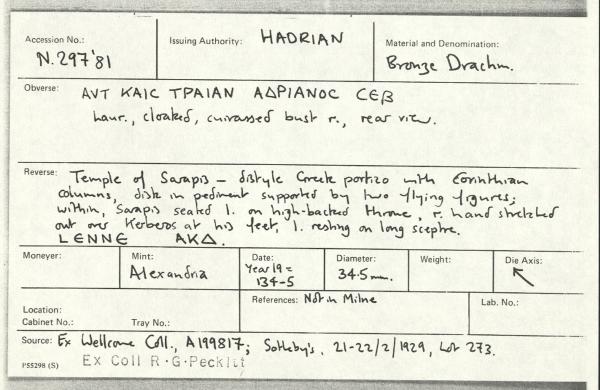 Accession No.:
N.297'81
Issuing Authority: HADRIAN
Material and Denomination:
Bronze Drachm.
Obverse: ΑVΤ ΚΑΙС ΤΡΑΙΑΝ ΑΔΡΙΑΝΟС СЄβ
laur., cloaked, cuirassed bust r., rear view.
Reverse: Temple of Sarapis – distyle Greek portico with Corinthian
columns, disk in pediment supported by two flying figures;
within, Sarapis seated l. on high-backed throne, r. hand stretched
out over Kerberos at his feet, l. resting on long sceptre.
LЄΝΝЄ ΑΚΔ.
Moneyer:
Mint:
Alexandria
Date:
Year 19 =
134-5
Diameter:
34.5mm.
Weight:
Die Axis:
↖
Location:
Cabinet No.: Tray No.:
References: Not in Milne
Lab. No.:
Source: Ex Wellcome Coll., A199817; Sotheby's, 21-22/2/1929, Lot 273.
P55298 (S) Ex Coll R·G·Peckitt